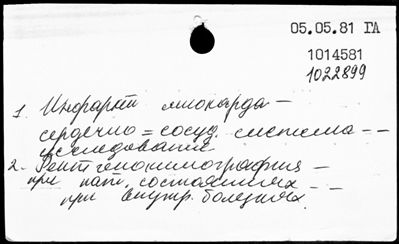 05.05.81 ГА
1014581
1022899
1. Инфаркт миокарда –
сердечно = сосуд. система – –
исследование
2. Рентгенокимография –
при пат. состояниях – –
при внутр. болезнях.